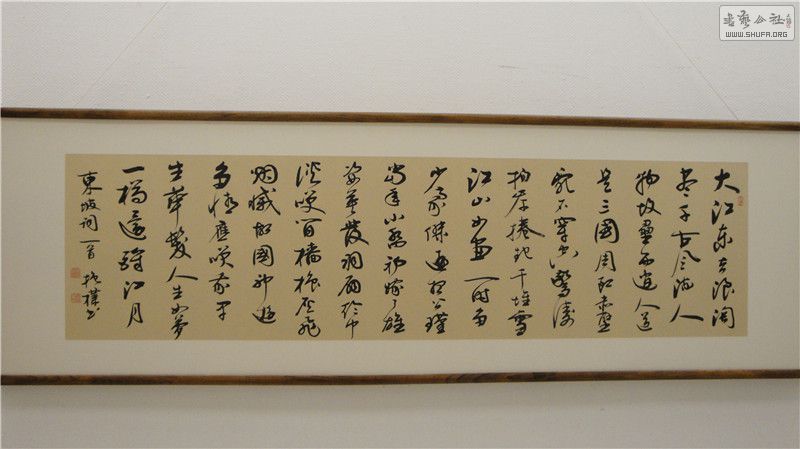 大江东去浪淘
尽千古风流人
物故壘西边人道
是三國周郎赤壁
乱石穿空驚涛
拍岸捲起千堆雪
江山如画一时多
少豪傑遥想公瑾
当年小乔初嫁了雄
姿英發羽扇纶巾
谈笑间樯橹灰飛
烟滅故國神遊
多情應笑我早
生華髮人生如夢
一樽還酹江月
東坡词一首
書藝公社
WWW.SHUFA.ORG